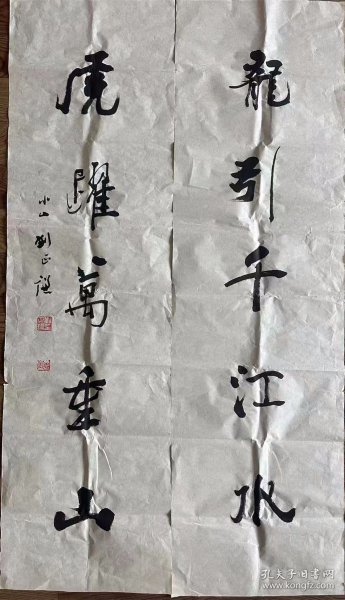 龍引千江水
虎躍萬重山
小山 劉正謙
孔夫子旧书网
www.kongfz.com